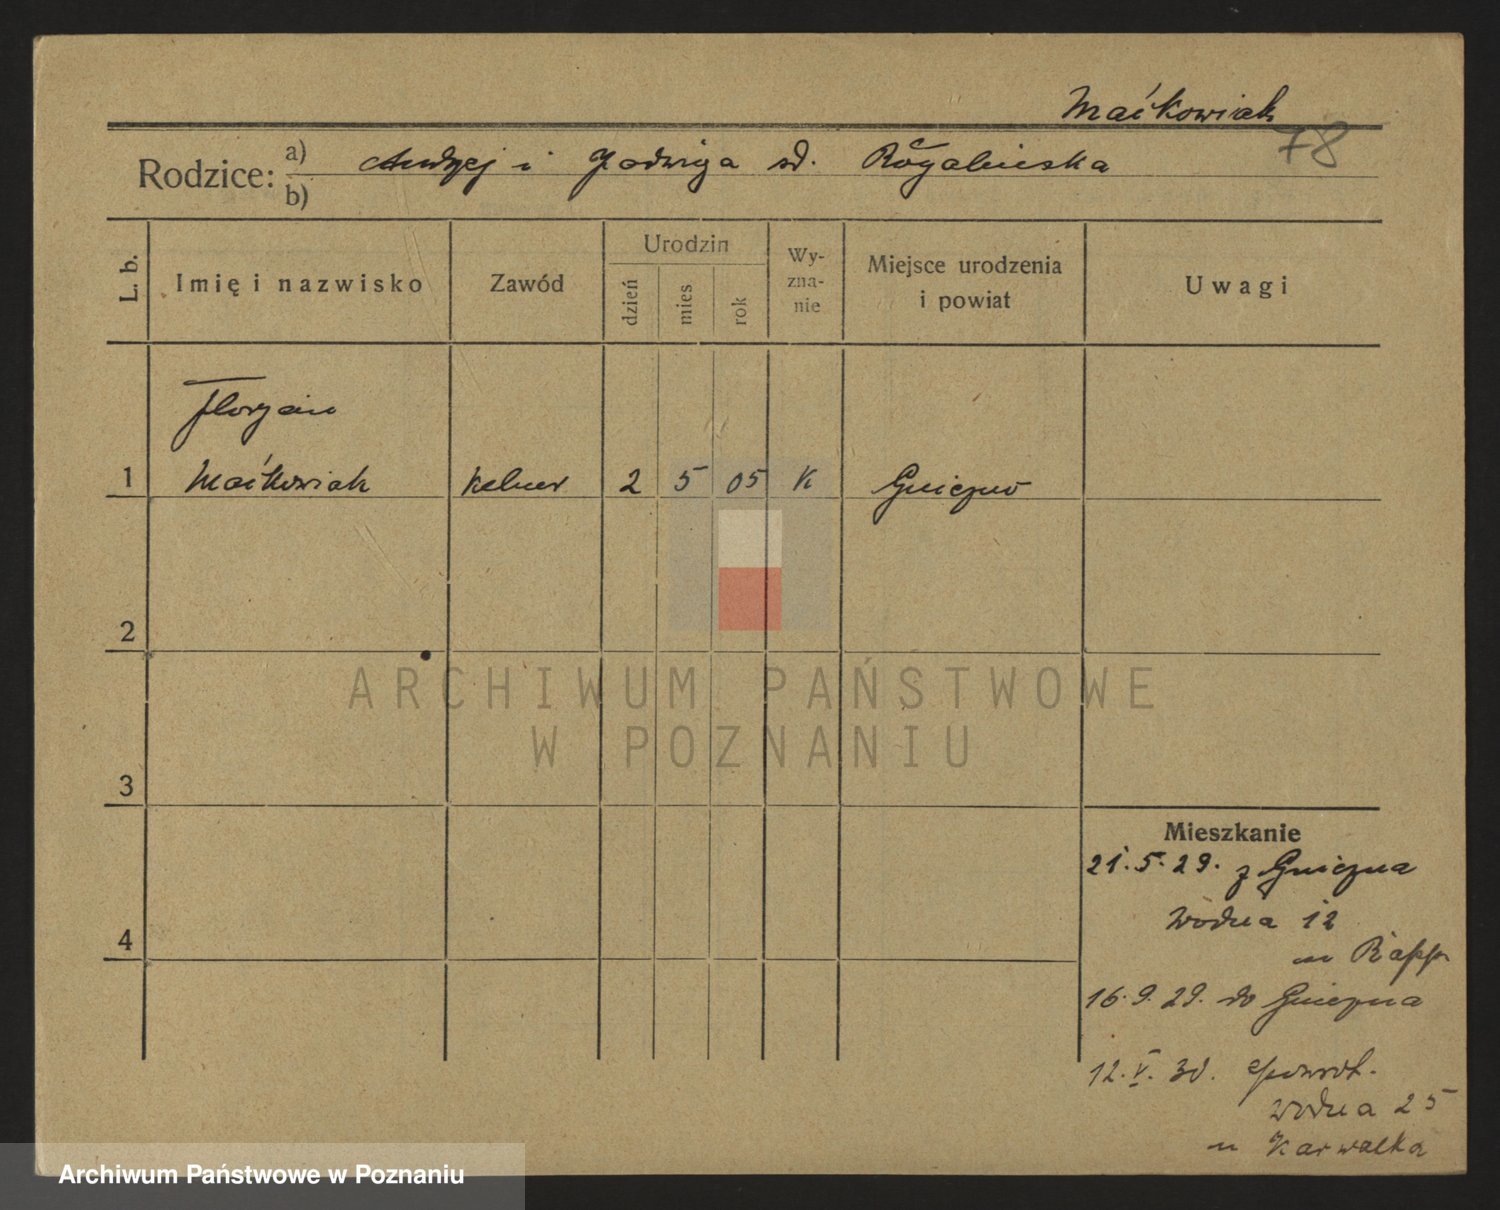 Maćkowiak
78
Rodzice: a) Andrzej i Jadwiga zd. Rogalińska
b)
L. b. Imię i nazwisko Zawód Urodzin Wy-zna-nie Miejsce urodzenia i powiat Uwagi
dzień mies rok
Florjan
1 Maćkowiak kelner 2 5 05 K Gniezno
2
ARCHIWUM PAŃSTWOWE
W POZNANIU
3
Mieszkanie
21.5.29. z Gniezna
Wodna 12
4
u Rapp
16.9.29. do Gniezna
12.V.30. powrót.
Wodna 25
u Karwatka
Archiwum Państwowe w Poznaniu